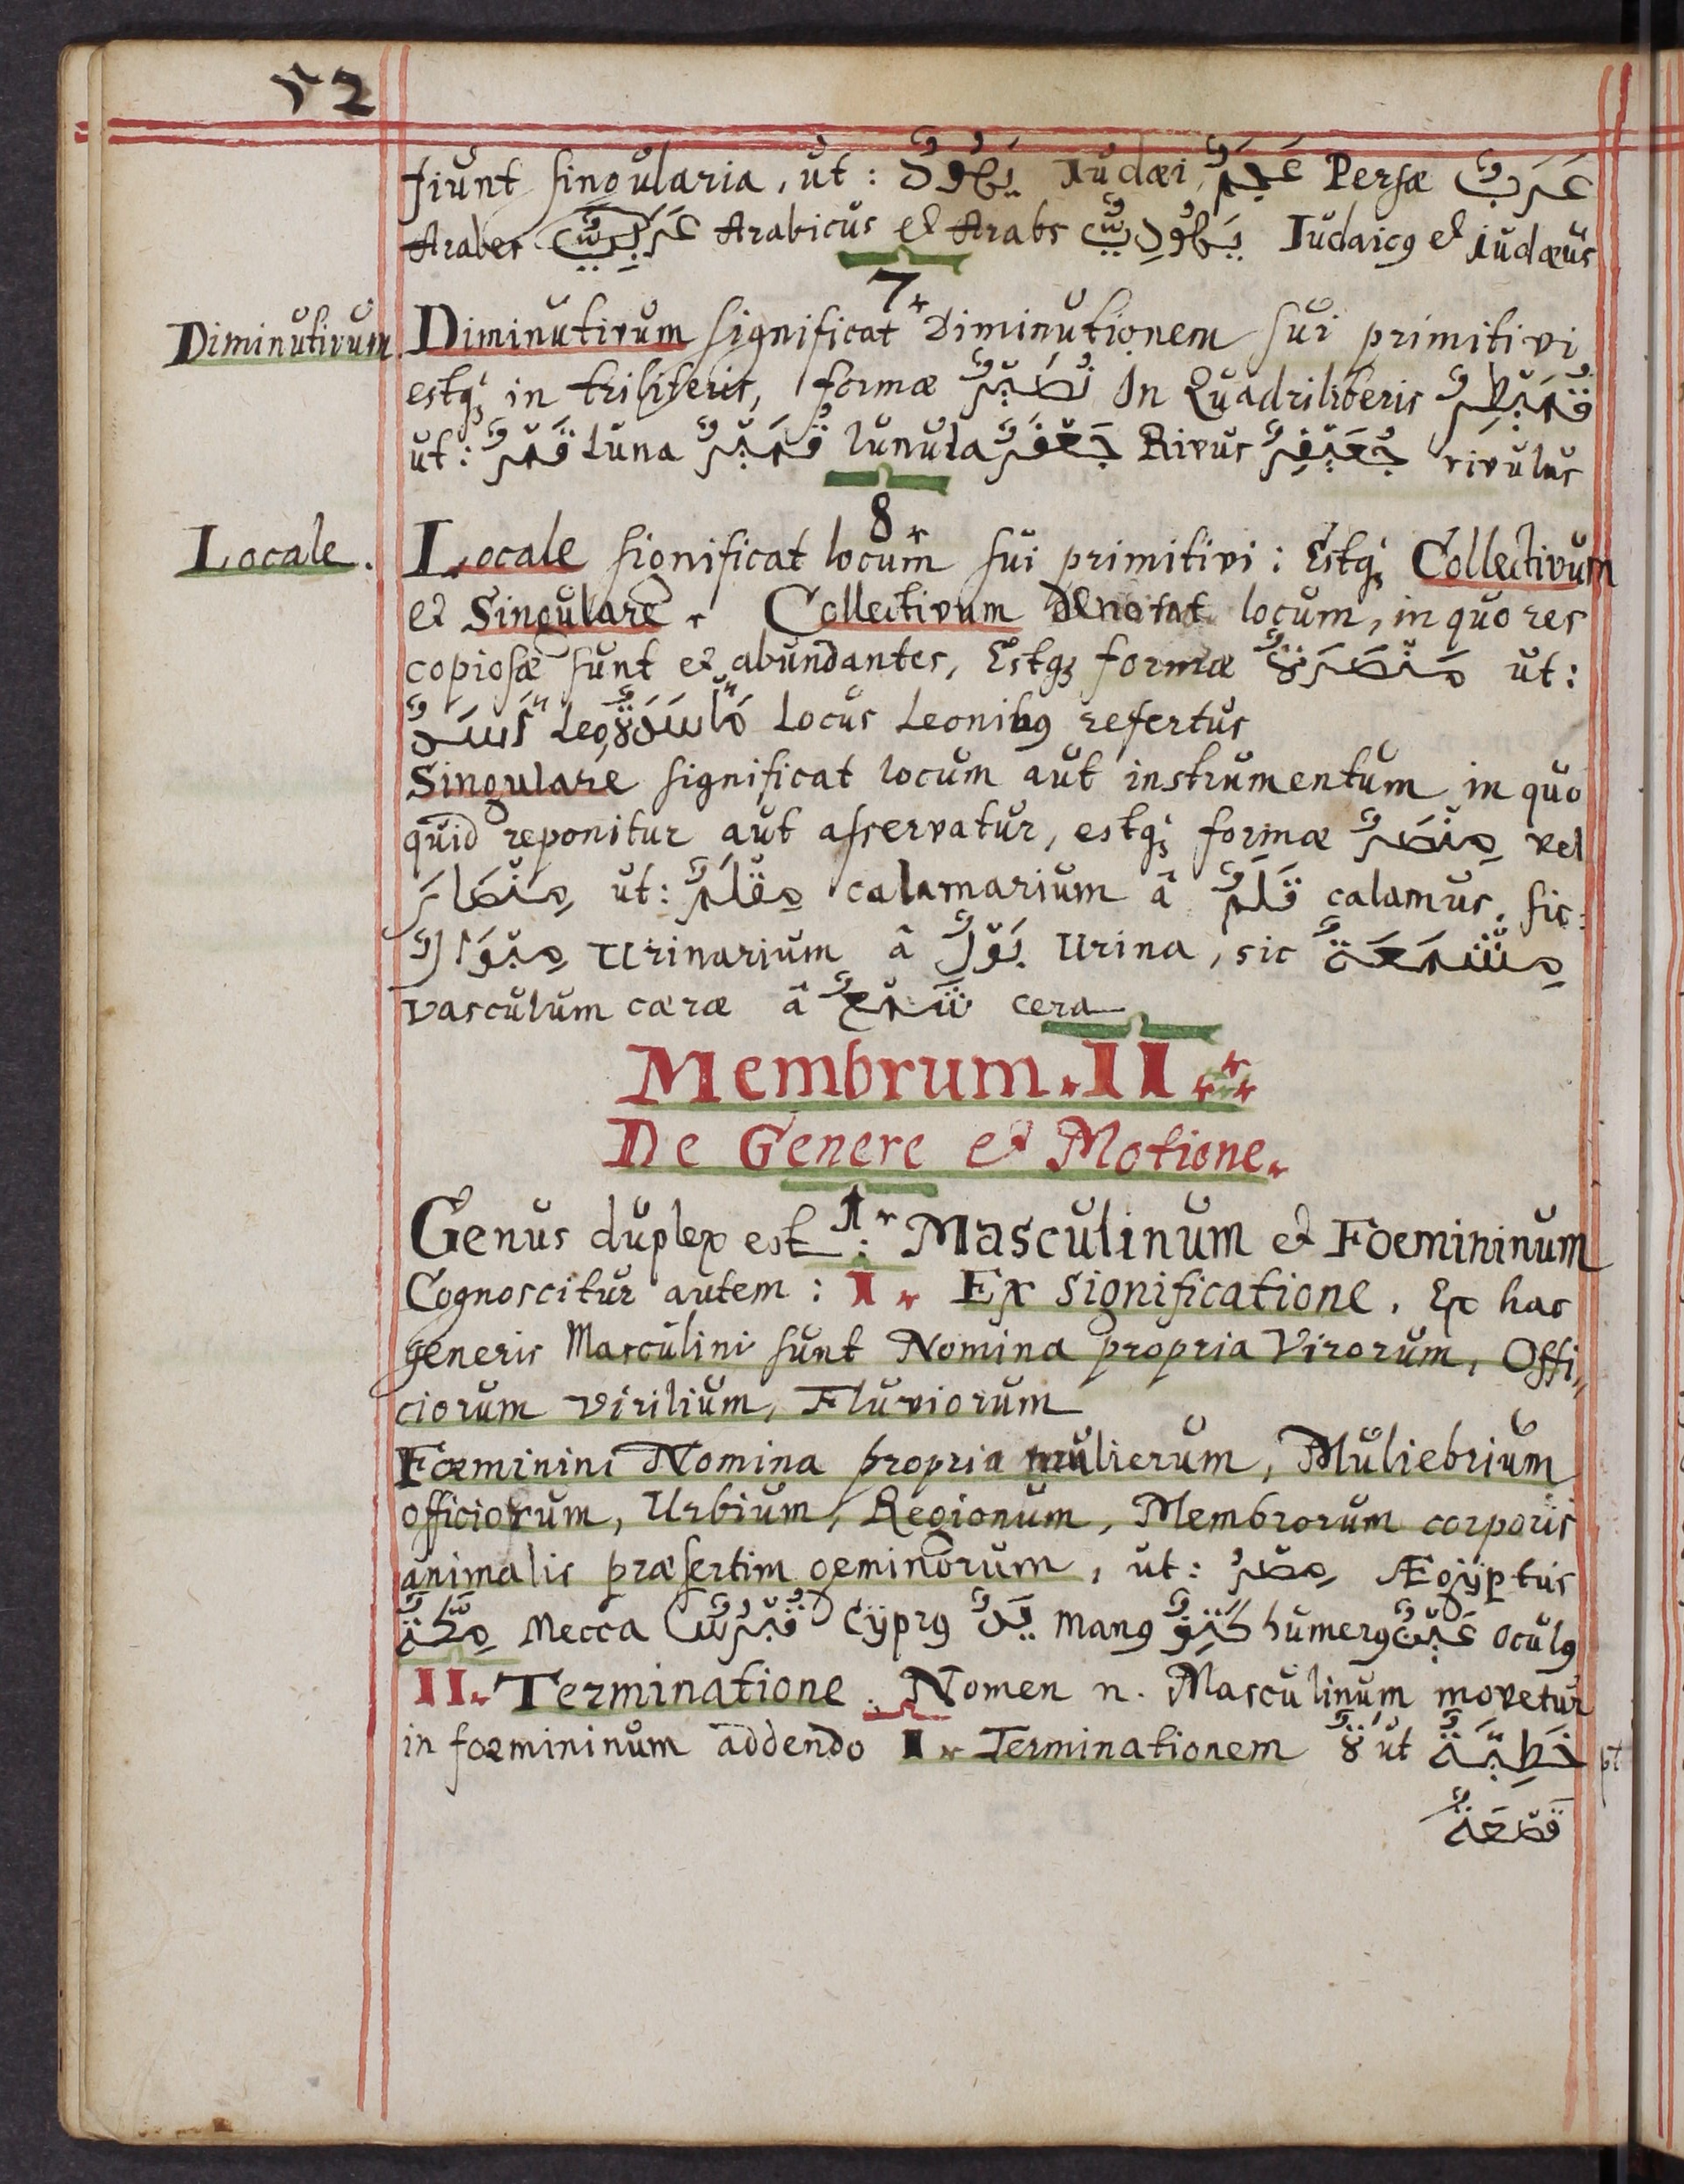 fiunt singularia, ut: يَهُودٌ Iudæi, عَجَمٌ Persæ عَرَبٌ
Arabes عَرَبِيٌّ Arabicus et Arabs يَهُودِيٌّ Iudaicꝰ et iudæus
7.
Diminutivum. Diminutivum significat Diminutionem sui primitivi
estqꝫ in triliteris, formæ نُصَيْرٌ In Quadriliteris قُمَيْطِرٌ
ut: قَمَرٌ Luna قُمَيْرٌ lunula جَعْفَرٌ Rivus جُعَيْفِرٌ rivulus
8.
Locale. Locale significat locum sui primitivi: Estqꝫ Collectivum
et Singulare. Collectivum denotat locum, in quo res
copiosæ sunt et abundantes, Estqꝫ formæ مَنْصَرَةٌ ut:
أَسَدٌ Leo, مَأْسَدَةٌ Locus Leonibꝰ refertus
Singulare significat locum aut instrumentum in quo
quid reponitur aut asservatur, estqꝫ formæ مِنْصَرٌ vel
مِنْصَارٌ ut: مِقْلَمٌ calamarium â قَلَمٌ calamus. sic:
مِبْوَالٌ Urinarium â بَوْلٌ Urina, sic مِشْمَعَةٌ
vasculum cæræ â شَمْعٌ cera
Membrum. II.
De Genere et Motione.
1.
Genus duplex est: Masculinum et Foemininum
Cognoscitur autem: I. Ex significatione. Ex hac
generis Masculini sunt Nomina propria Virorum, Offi
ciorum virilium, Fluviorum
Fœminini Nomina propria mulierum, Muliebrium
officiorum, Urbium, Regionum, Membrorum corporis
animalis præsertim geminorum, ut: مِصْرُ Ægÿptus
مِكَّةٌ Mecca قُبْرُسُ Cÿprꝰ يَدٌ manꝰ كَتِفٌ humerꝰ عَيْنٌ oculꝰ
II. Terminatione. Nomen n. Masculinum movetur
in foemininum addendo I. Terminationem ةٌ ut خَطِيَّةٌ
قَصْعَةٌ